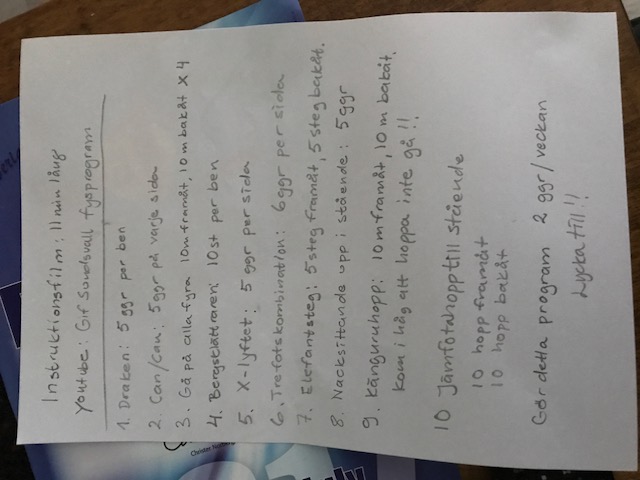 Instruktionsfilm: 11 min lång
Youtube: Gif Sundsvall fysprogram
1. Draken: 5 ggr per ben
2. Can/Can: 5 ggr på varje sida
3. Gå på alla fyra 10m framåt, 10m bakåt x 4
4. Bergsklättraren: 10 st per ben
5. X-lyftet: 5 ggr per sida
6. Trefotskombination: 6 ggr per sida
7. Elefantsteg: 5 steg framåt, 5 steg bakåt.
8. Nacksittande upp i stående: 5 ggr
9. Känguruhopp: 10 m framåt, 10 m bakåt.
Kom i håg att hoppa inte gå!!
10 Jämfotahopp till stående
10 hopp framåt
10 hopp bakåt
Gör detta program 2 ggr/veckan
Lycka till!!
Christer